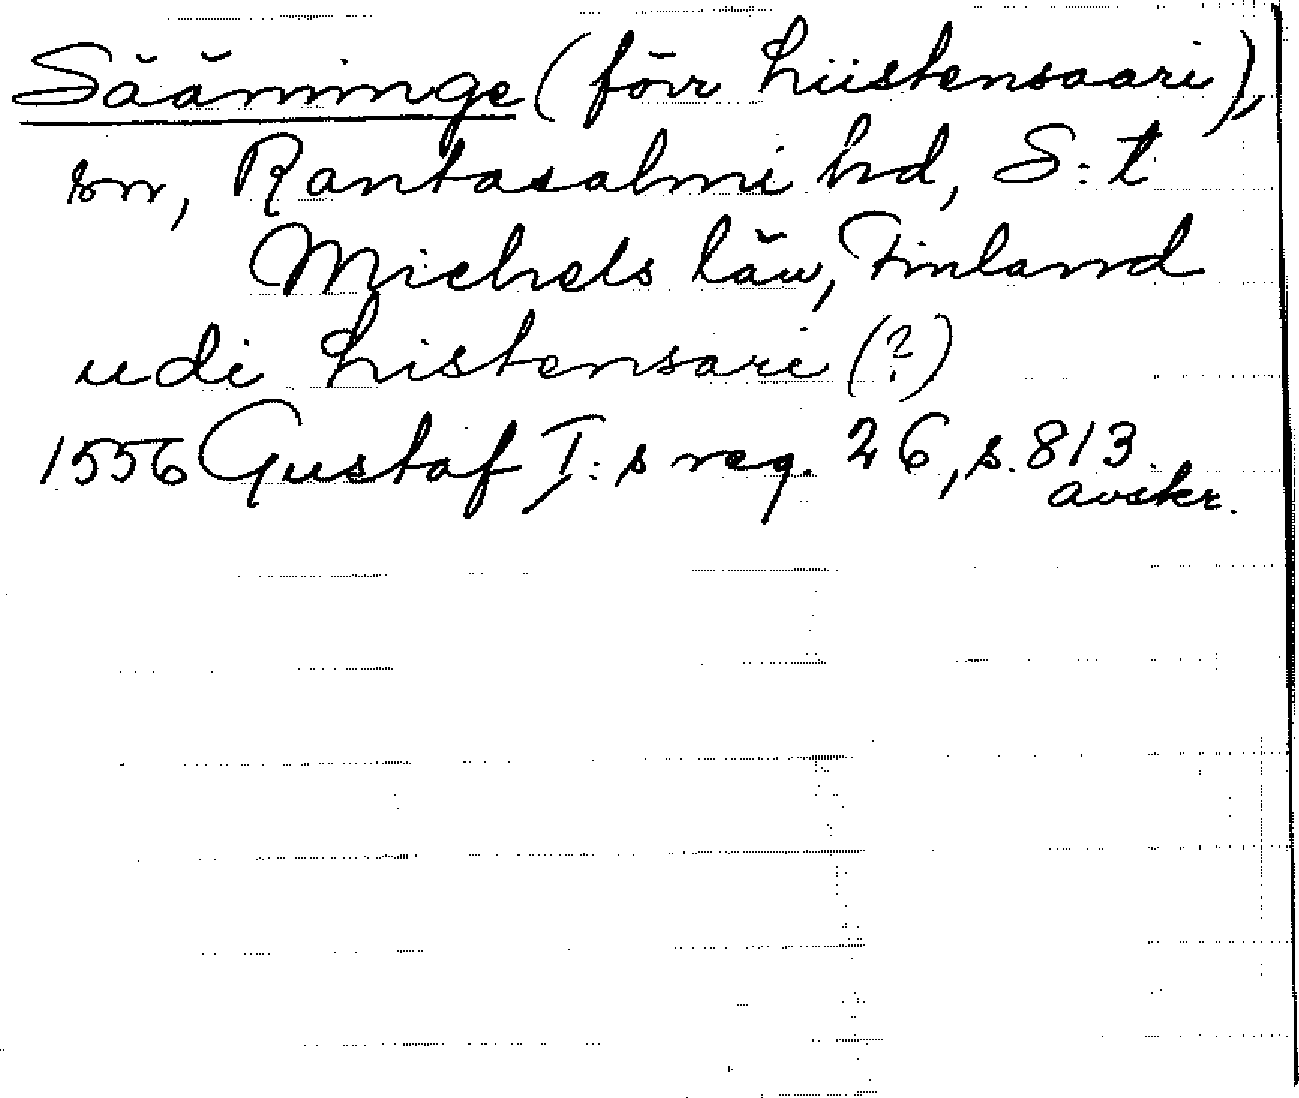 Sääminge (förr Liistensaari),
sn, Rantasalmi hd, S:t
Michels län, Finland
udi Listensari (?)
1556 Gustaf I:s reg. 26, s. 813.
avskr.